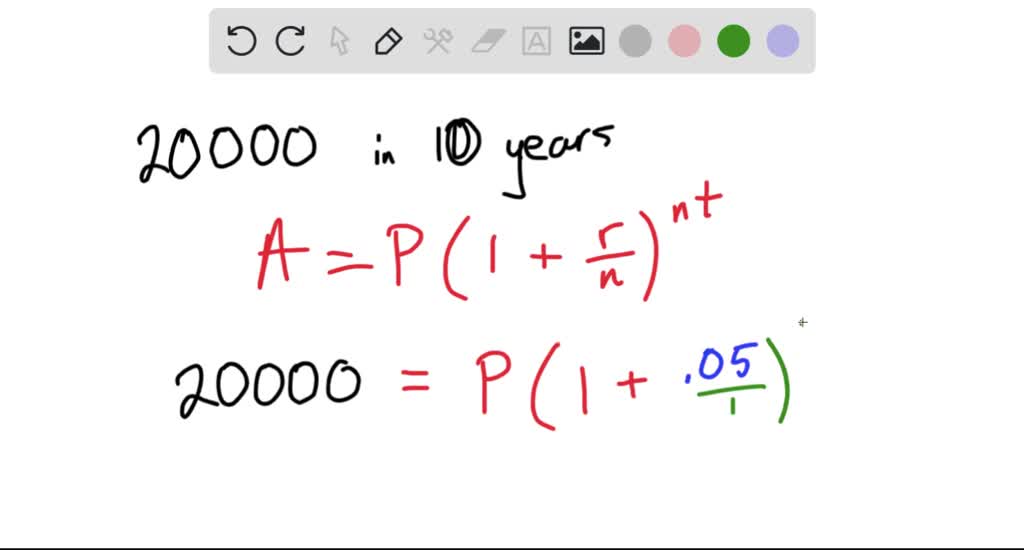 20000 in 10 years
A = P(1 + r/n)^nt
20000 = P(1 + .05/1)